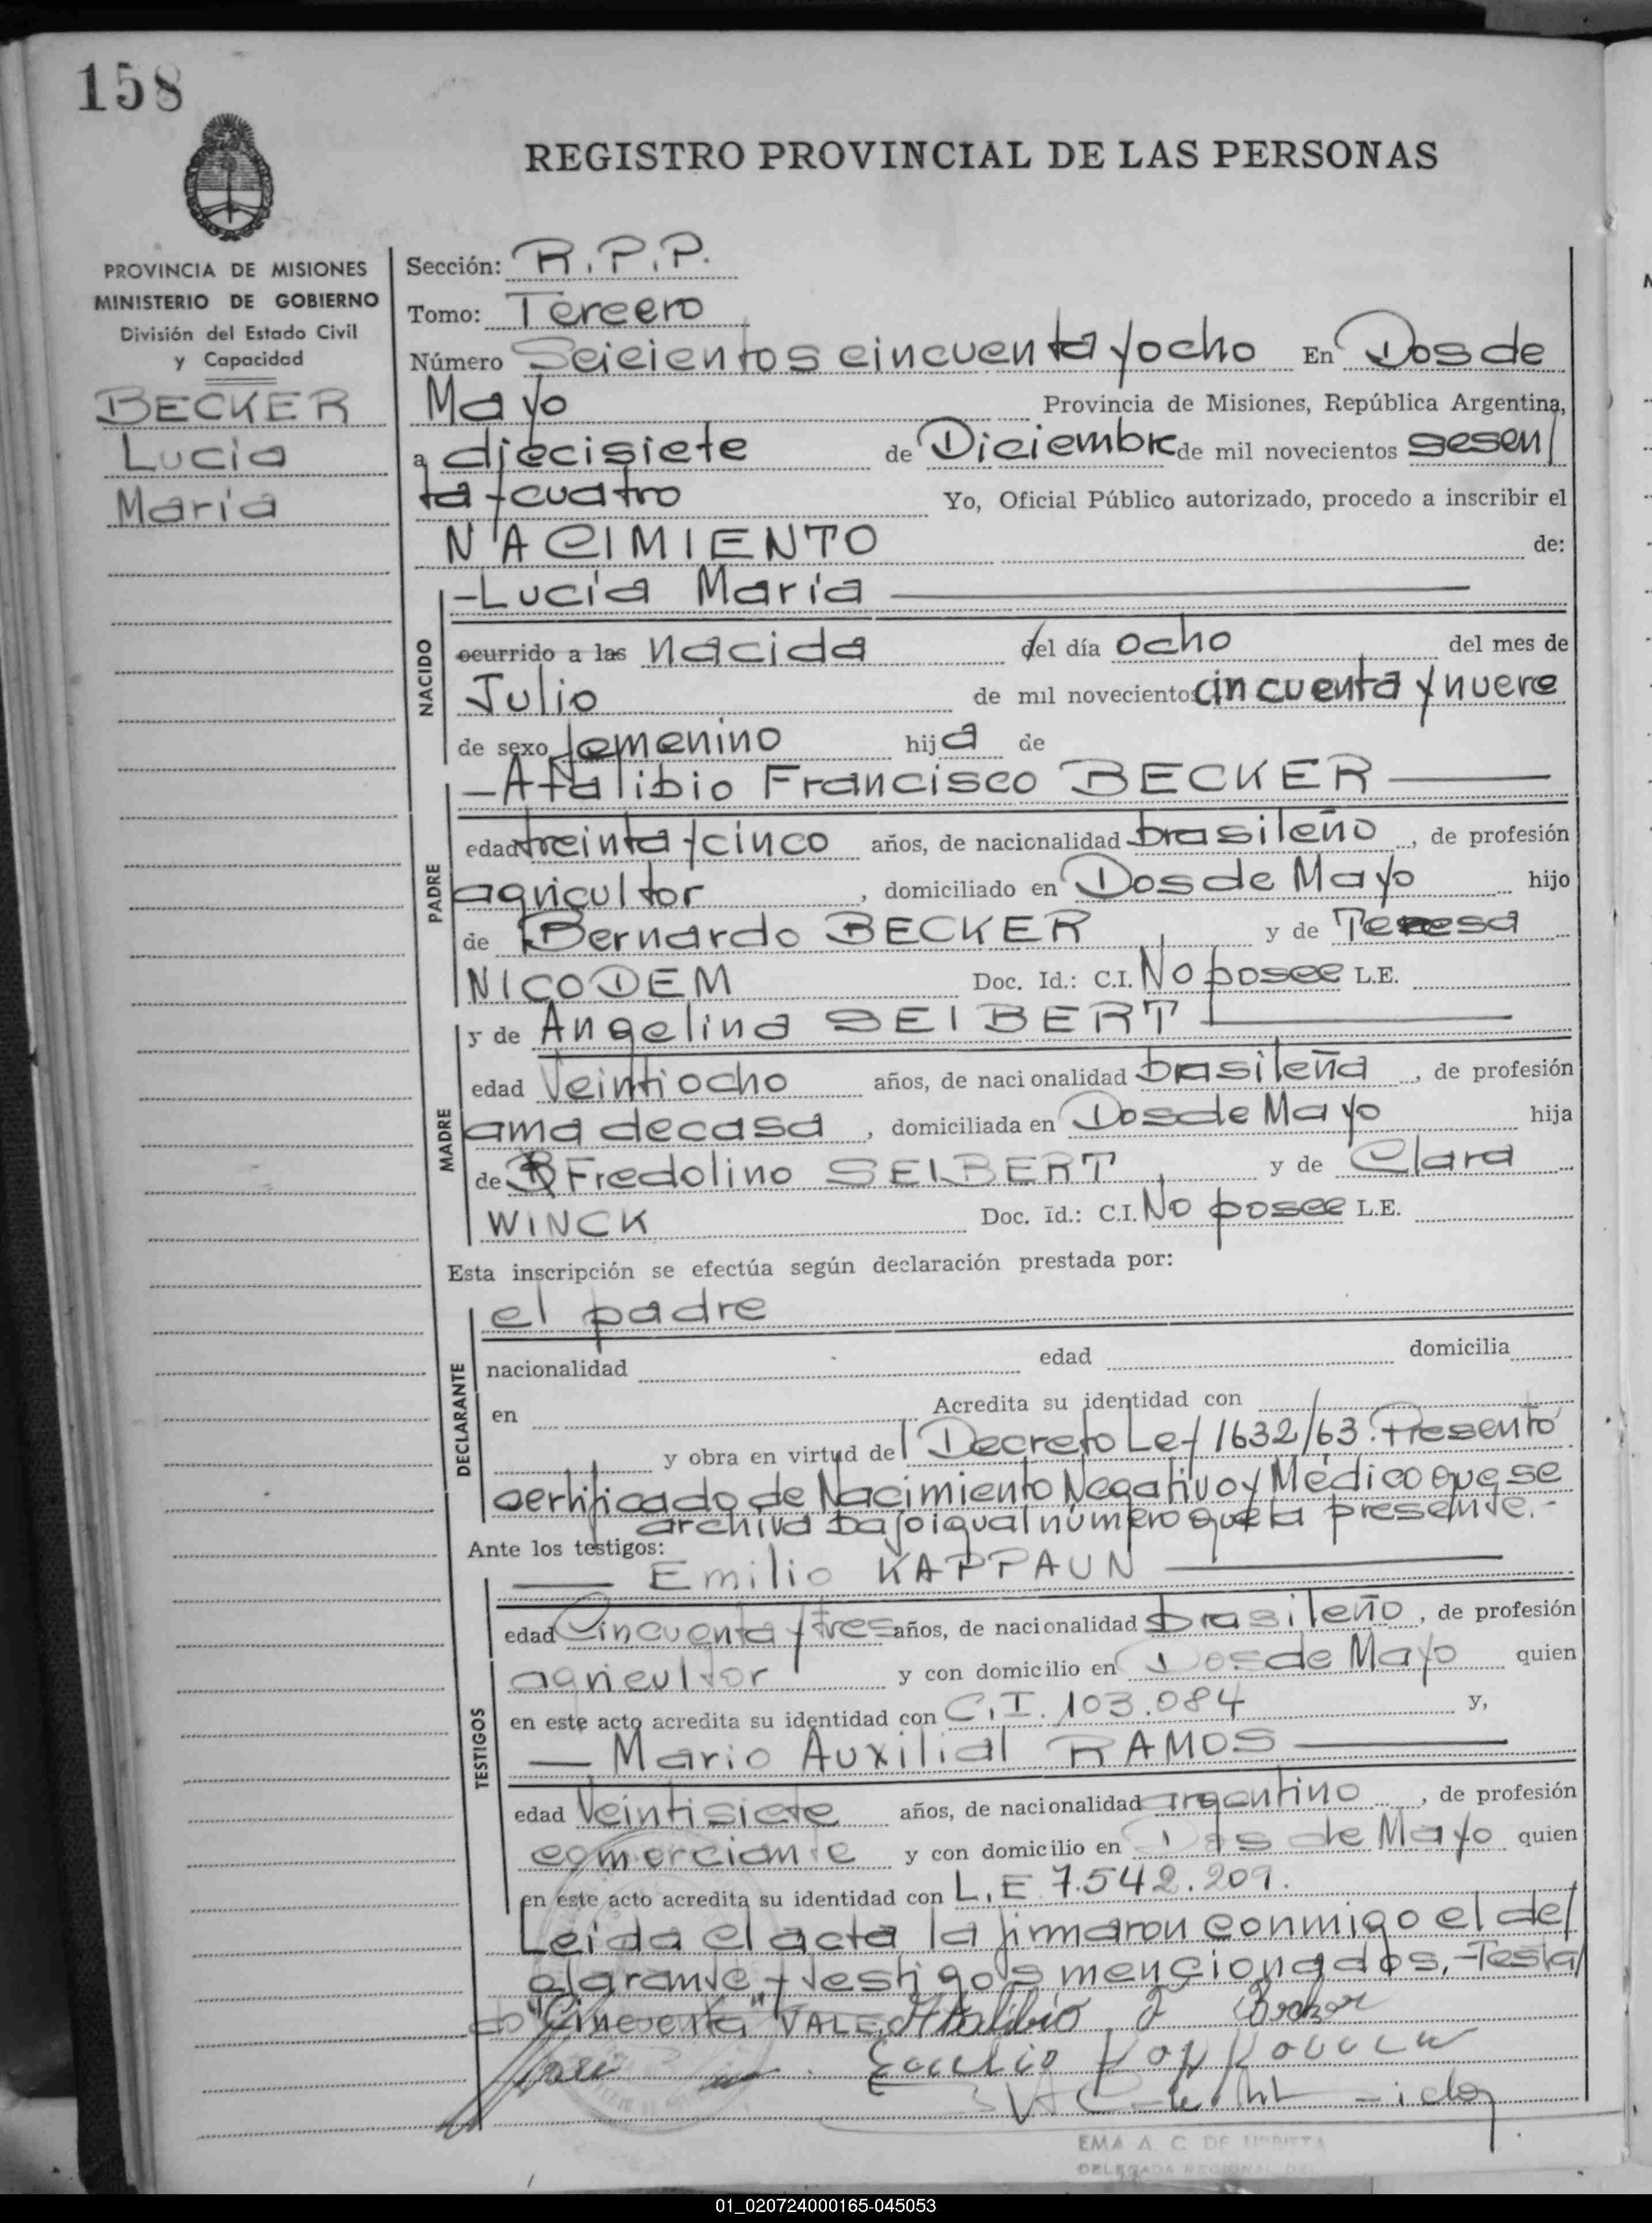 158
REGISTRO PROVINCIAL DE LAS PERSONAS
PROVINCIA DE MISIONES
MINISTERIO DE GOBIERNO
División del Estado Civil
y Capacidad
BECKER
Lucia
María
Sección: R.P.P.
Tomo: Tercero
Número Seicientos cincuenta y ocho En Dos de
Mayo Provincia de Misiones, República Argentina,
a diecisiete de Diciembre de mil novecientos sesen/
ta y cuatro Yo, Oficial Público autorizado, procedo a inscribir el
NACIMIENTO de:
NACIDO
-Lucía María
ocurrido a las nacida del día ocho del mes de
Julio de mil novecientos cincuenta y nueve
de sexo femenino hija de
PADRE
-Atalibio Francisco BECKER
edad treinta y cinco años, de nacionalidad brasileño, de profesión
agricultor, domiciliado en Dos de Mayo hijo
de Bernardo BECKER y de Teresa
NICODEM Doc. Id.: C.I. No posee L.E.
MADRE
y de Angelina SEIBERT
edad Veintiocho años, de nacionalidad brasileña, de profesión
ama de casa, domiciliada en Dos de Mayo hija
de Fredolino SEIBERT y de Clara
WINCK Doc. Id.: C.I. No posee L.E.
Esta inscripción se efectúa según declaración prestada por:
DECLARANTE
el padre
nacionalidad edad domicilia
en Acredita su identidad con
y obra en virtud del Decreto Ley 1632/63. Presentó
certificado de Nacimiento Negativo y Médico que se
archiva bajo igual número que la presente.-
Ante los testigos:
TESTIGOS
Emilio KAPPAUN
edad Cincuenta y tres años, de nacionalidad brasileño, de profesión
agricultor y con domicilio en Dos de Mayo quien
en este acto acredita su identidad con C.I. 103.084 y,
Mario Auxilial RAMOS
edad Veintisiete años, de nacionalidad argentino, de profesión
comerciante y con domicilio en Dos de Mayo quien
en este acto acredita su identidad con L.E 7.542.209.
Leida el acta la firmaron conmigo el de/
clarante y testigos mencionados.-Testa/
do "Cincuenta" VALE. Atalibio F Becker
Emilio Kappaun
EMA A. C. DE URBIETA
DELEGADA REGIONAL
01_020724000165-045053